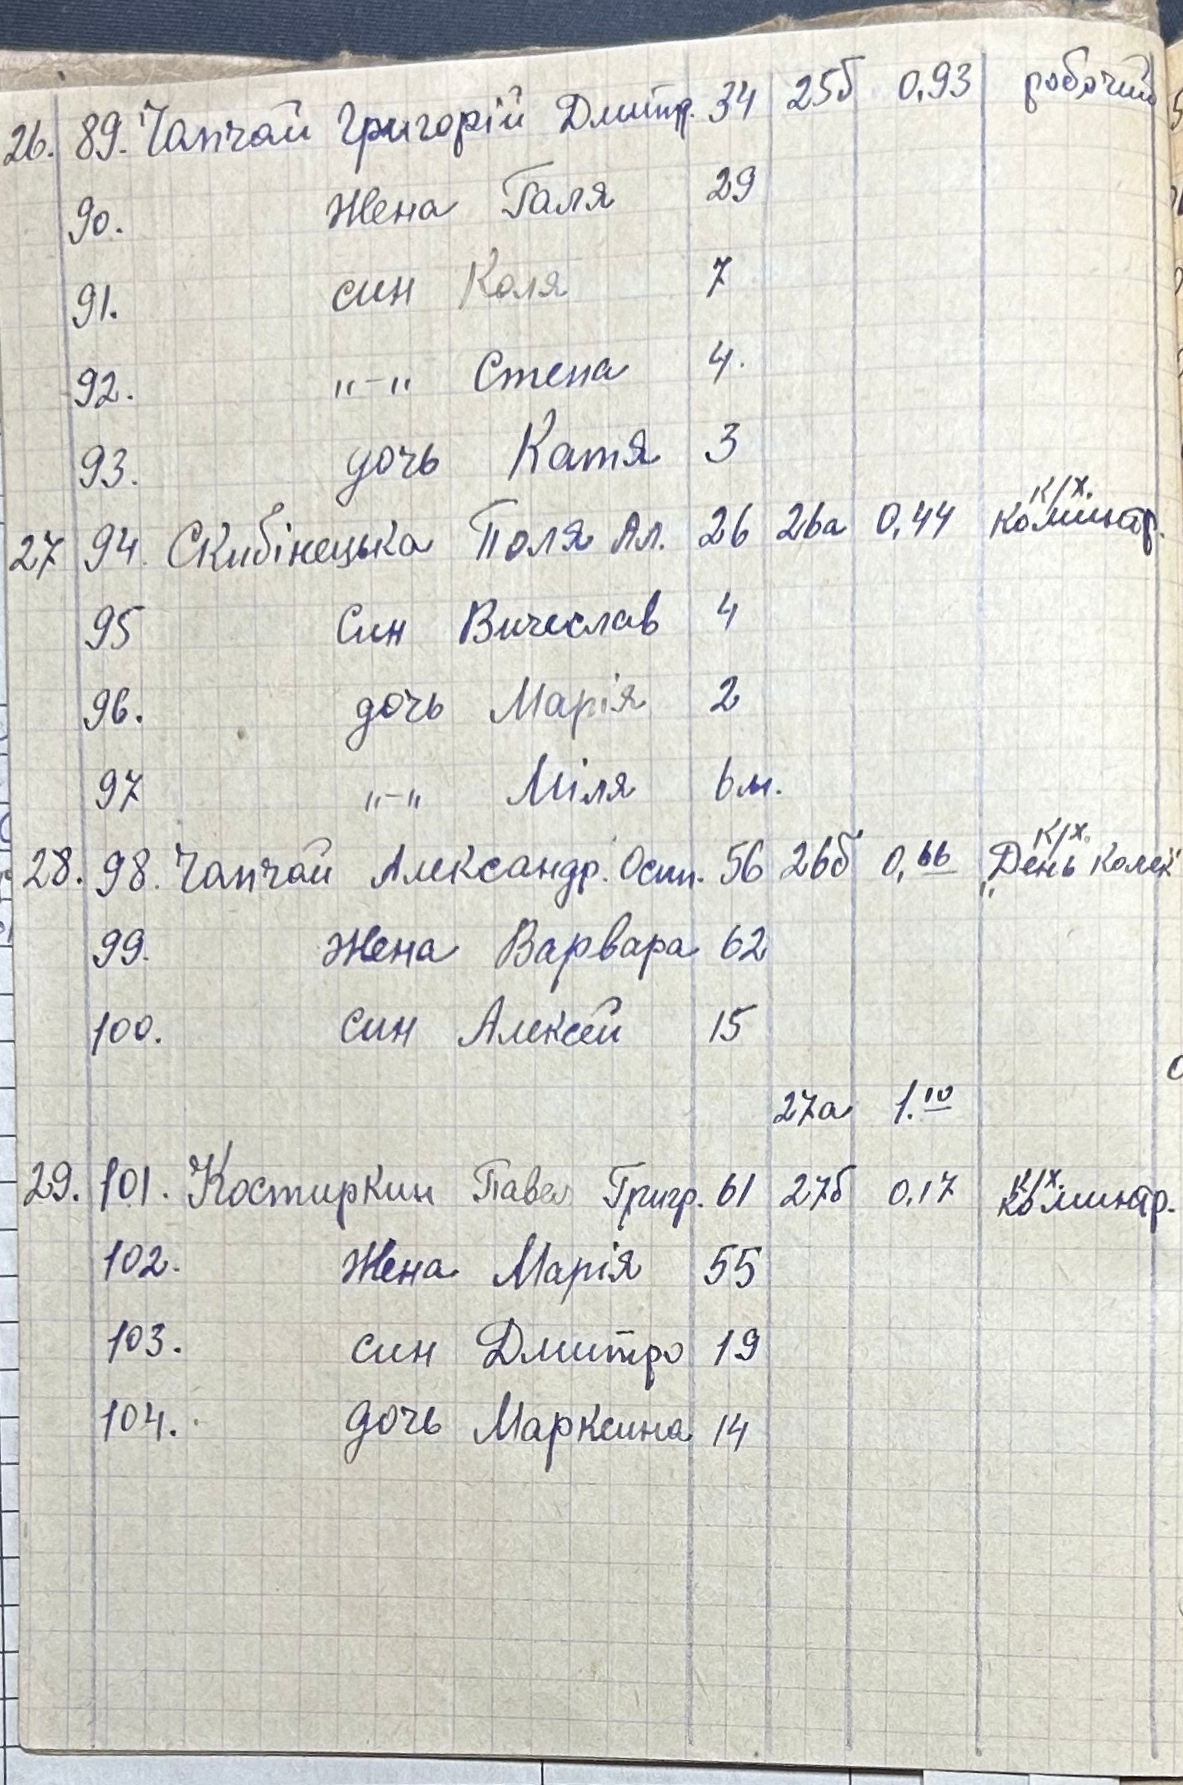 26. 89. Чапчай Григорій Дмитр. 34 25б 0,93 робочий
90. Жена Галя 29
91. син Коля 7
92. "-" Степа 4.
93. дочь Катя 3
27 94. Скибінецька Поля Ал. 26 26а 0,44 к/х. Коминтр.
95 Син Вичеслав 4
96. дочь Марія 2
97 "-" Міля 6 м.
28. 98. Чапчай Александр. Осип. 56 26б 0,66 к/х. "День Колек
99. Жена Варвара 62
100. син Алексей 15
27а 1.10
29. 101. Костиркин Павел Григр. 61 27б 0.17 к/х. Коминтр.
102. Жена Марія 55
103. син Дмитро 19
104. дочь Марксина 14